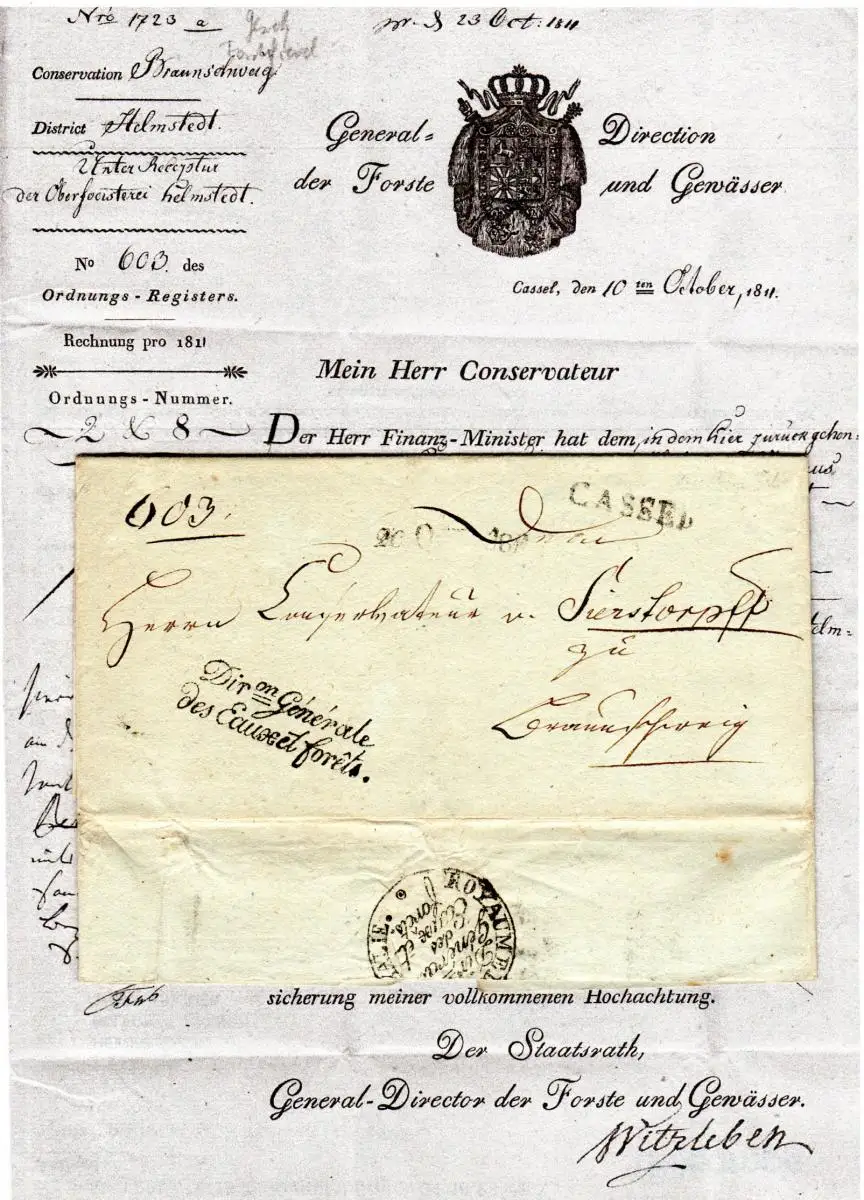 Nro 1723 a
pr. d 23 Oct: 1811
Conservation Braunschweig
District Helmstedt.
Unter Receptur
der Oberfoersterei Helmstedt.
No 603. des
Ordnungs-Registers.
Rechnung pro 1811
Ordnungs-Nummer.
2 & 8
General- Direction
der Forste und Gewässer
Cassel, den 10 ten October, 1811.
Mein Herr Conservateur
Der Herr Finanz-Minister hat dem, in dem hier zurückgehen-
aus
elm-
603.
CASSEL
Dem
Herrn Conservateur v. Sierstorpff
zu
Braunschweig
Dir on Générale
des Eaux et forêts.
ROYAUME
Générale
des
Eaux et
forêts.
sicherung meiner vollkommenen Hochachtung.
Der Staatsrath,
General-Director der Forste und Gewässer.
Witzleben